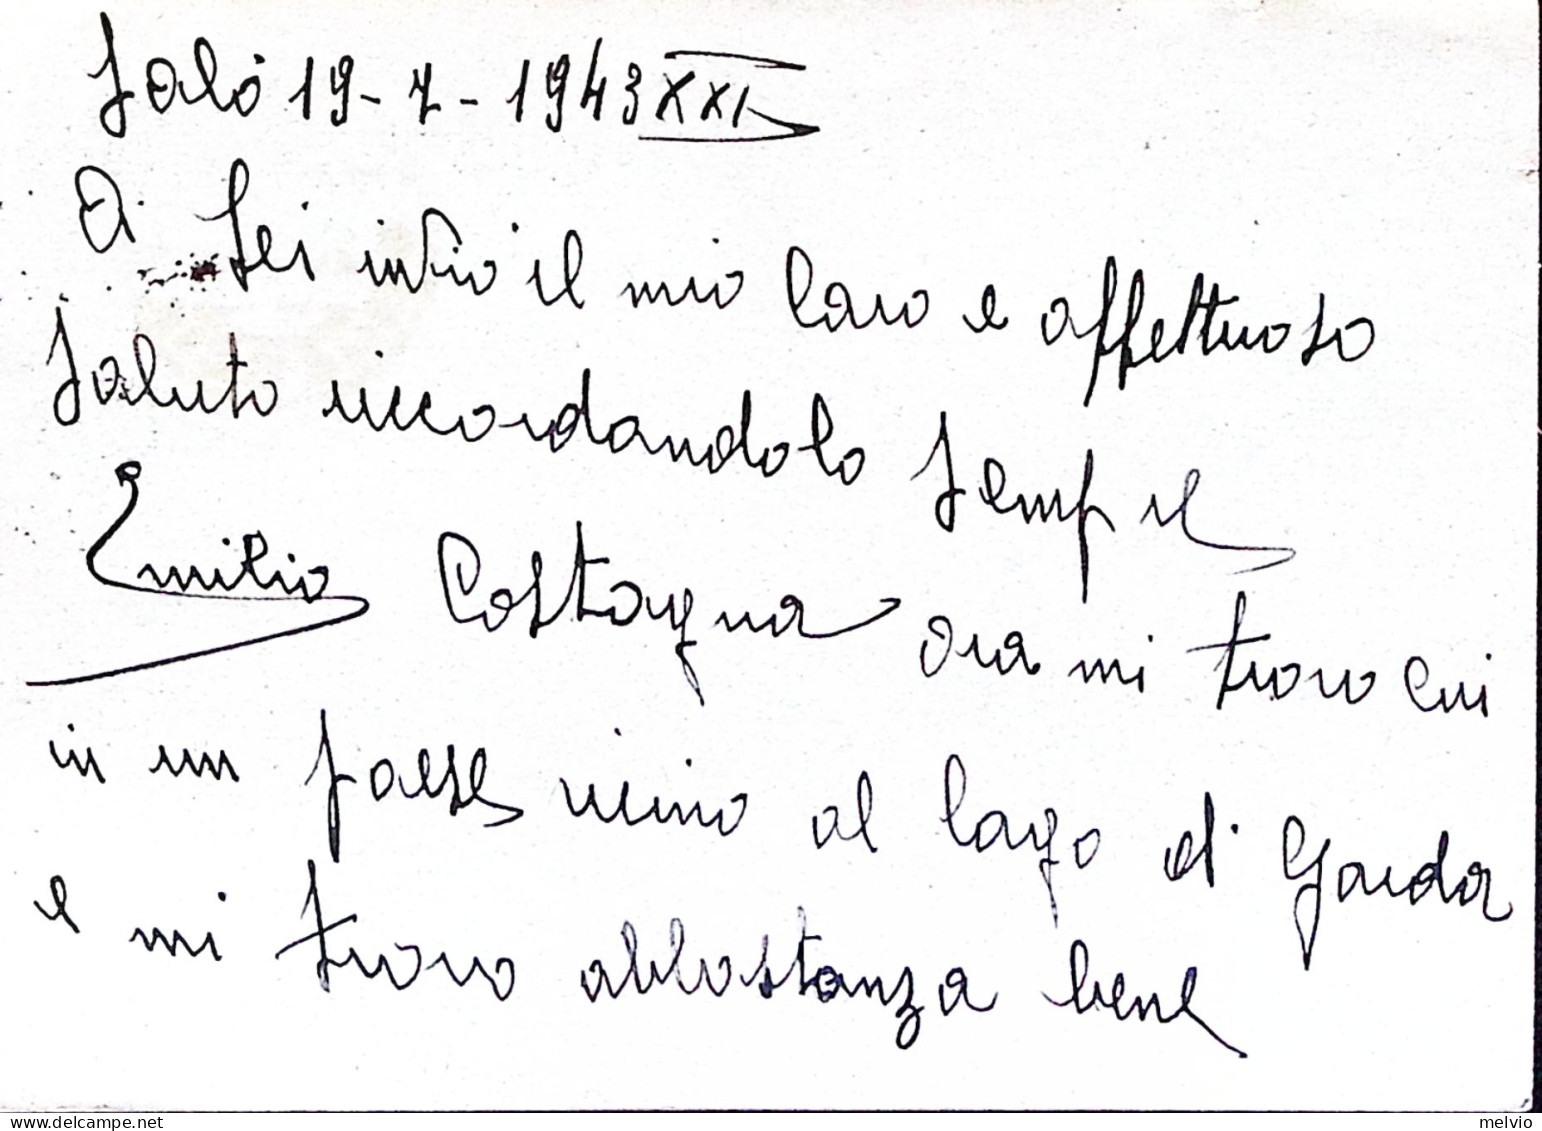 Salò 19-7-1943 XXI
A Lei invio il mio caro e affettuoso
saluto ricordandolo sempre
Emilio Costagna ora mi trovo qui
in un paese vicino al lago di Garda
e mi trovo abbastanza bene
delcampe.net
melvio